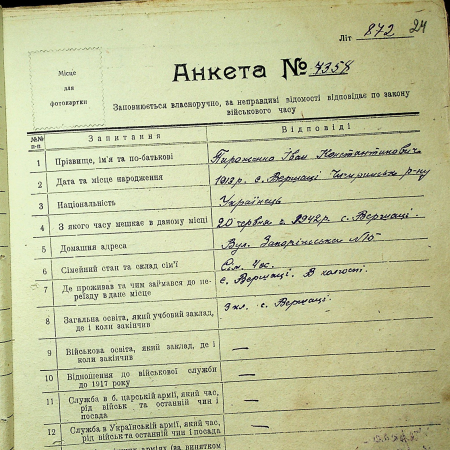 Літ 872 24
Місце
для
фотокартки
Анкета № 4358
Заповнюється власноручно, за неправдиві відомості відповідає по закону
військового часу
№№ п-п Запитання Відповіді
1 Прізвище, ім'я та по-батькові Іван Константинович
2 Дата та місце народження с. Вершаці р-ну
3 Національність Українець
4 З якого часу мешкає в даному місці 20 червня 1942р. с. Вершаці.
5 Домашня адреса Вул. №15
6 Сімейний стан та склад сім'ї
7 Де проживав та чим займався до пе-
реїзду в дане місце с. Вершаці. В
8 Загальна освіта, який учбовий заклад,
де і коли закінчив 3 кл. с. Вершаці.
9 Військова освіта, який заклад, де і
коли закінчив —
10 Відношення до військової служби
до 1917 року —
11 Служба в б. царській армії, який час,
рід військ та останній чин і
посада —
12 Служба в Українській армії, який час,
рід військ та останній чин і посада —
арміях (за винятком